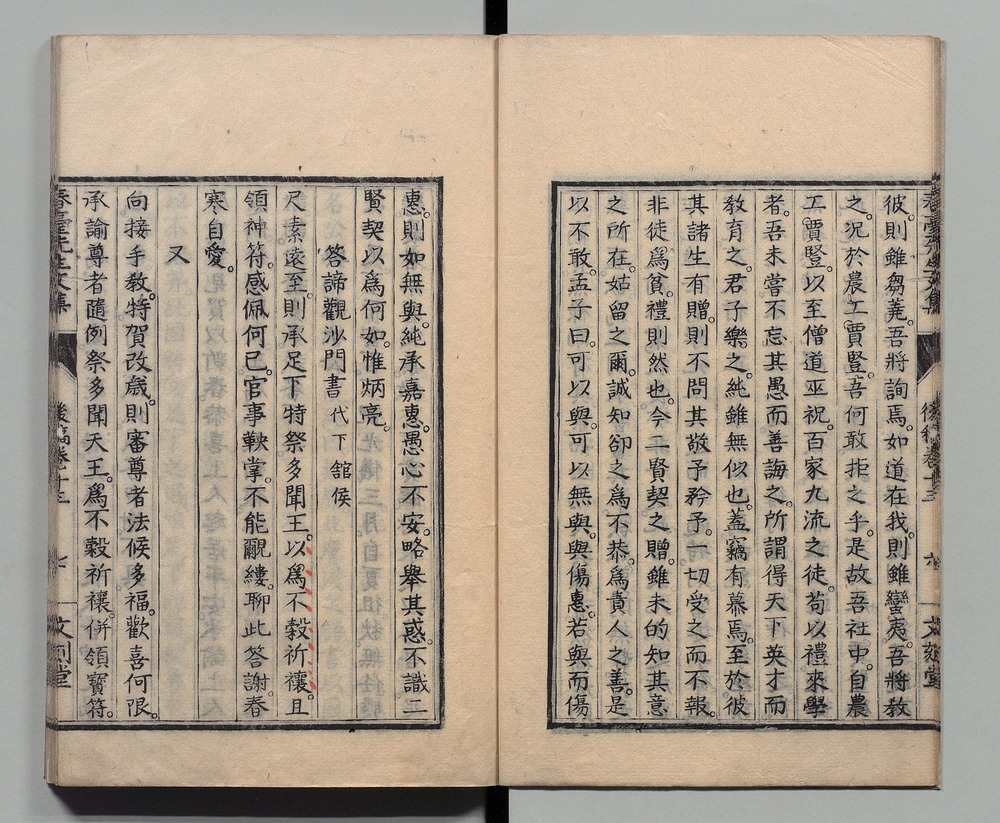 彼。則雖芻蕘。吾將詢焉。如道在我。則雖蠻夷。吾將敎
之。况於農工賈豎。吾何敢拒之乎。是故吾社中。自農
工賈豎。以至僧道巫祝。百家九流之徒。苟以禮來學
者。吾未嘗不忘其愚而善誨之。所謂得天下英才而
敎育之。君子樂之。純雖無似也。蓋竊有慕焉。至於彼
其諸生有贈。則不問其敬予矜予。一切受之而不報。
非徒爲貧。禮則然也。今二賢契之贈。雖未的知其意
之所在。姑留之爾。誠知卻之爲不恭。爲責人之善。是
以不敢。孟子曰。可以與。可以無與。與傷惠。若與而傷
惠。則如無與。純承嘉惠。愚心不安。略舉其惑。不識二
賢契以爲何如。惟炳亮。
答諦觀沙門書 代下館侯
尺素遠至。則承足下特祭多聞王。以爲不穀祈禳。且
領神符。感佩何已。官事鞅掌。不能覼縷。聊此答謝。春
寒自愛。
又
向接手敎。特賀改歲。則審尊者法候多福。歡喜何限。
承諭尊者隨例祭多聞天王。爲不穀祈禳。併領寶符。
春臺先生文集
後稿卷十三
七
文刻堂